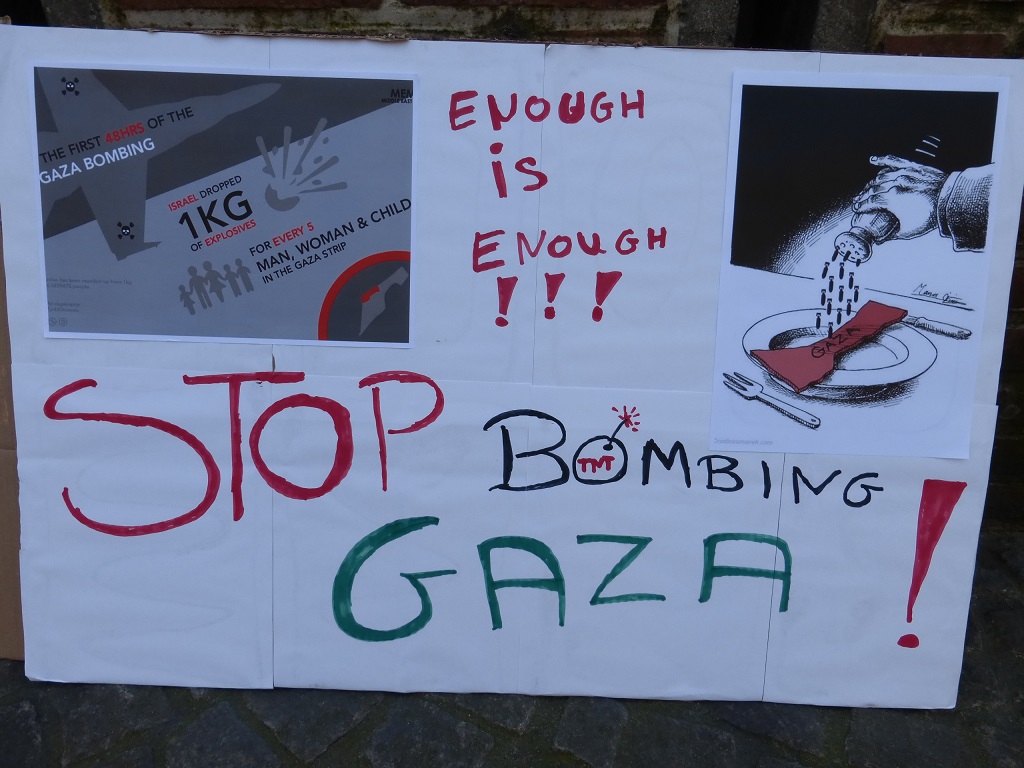 THE FIRST 48HRS OF THE
GAZA BOMBING
ISRAEL DROPPED
1KG
OF EXPLOSIVES
FOR EVERY 5
MAN, WOMAN & CHILD
IN THE GAZA STRIP
MEM
MIDDLE EAST
ENOUGH
is
ENOUGH
!!!
GAZA
STOP BOMBING
TNT
GAZA !